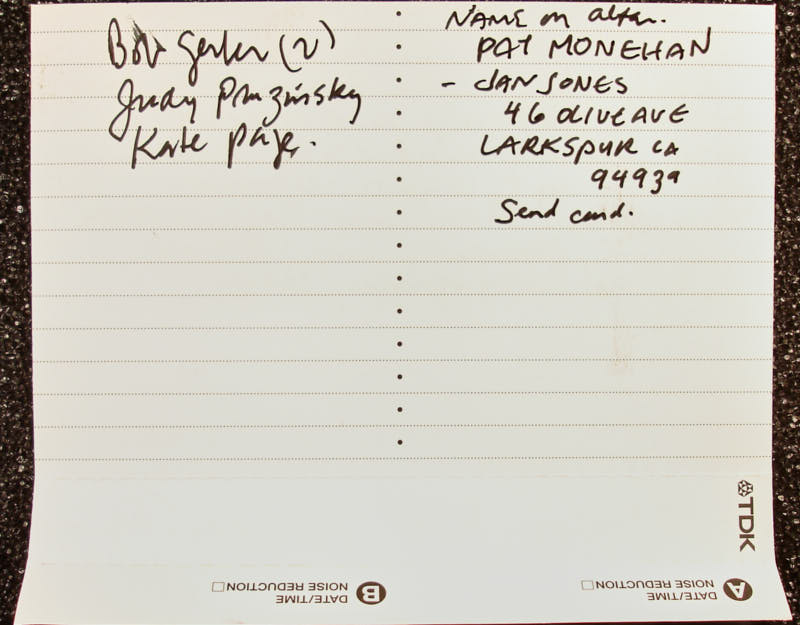 Bob Gerler (2)
Judy Pruzinsky
Kate Page.
NAME on altar.
PAT MONEHAN
- JAN JONES
46 OLIVE AVE
LARKSPUR CA
94939
Send card.
TDK
B DATE/TIME
NOISE REDUCTION
A DATE/TIME
NOISE REDUCTION